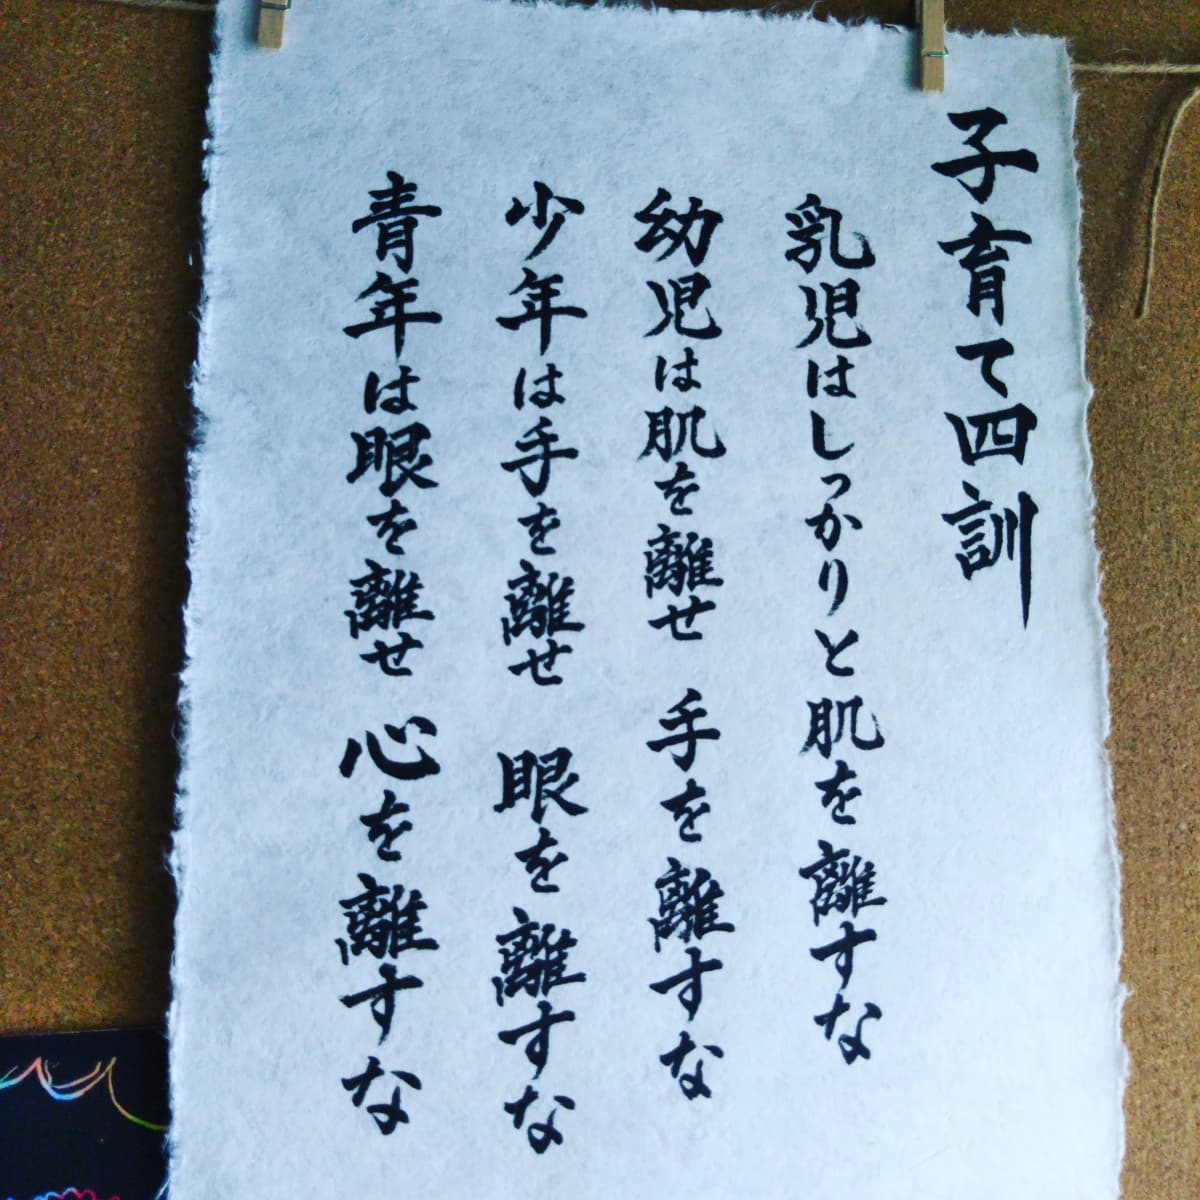 子育て四訓
乳児はしっかりと肌を離すな
幼児は肌を離せ 手を離すな
少年は手を離せ 眼を離すな
青年は眼を離せ 心を離すな